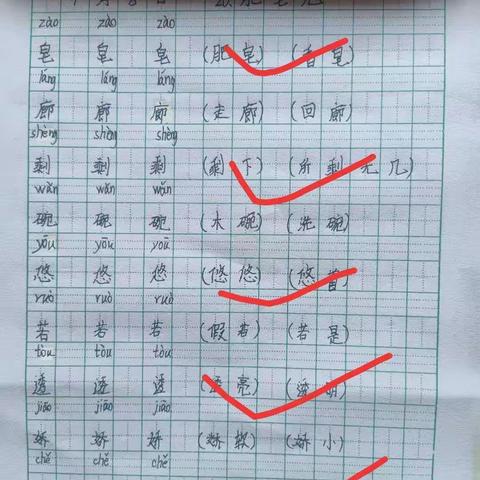 zào zào zào
皂 皂 皂 (肥皂) (香皂)
láng láng láng
廊 廊 廊 (走廊) (回廊)
shèng shèng shèng
剩 剩 剩 (剩下) (所剩无几)
wǎn wǎn wǎn
碗 碗 碗 (木碗) (洗碗)
yōu yōu yōu
悠 悠 悠 (悠悠) (悠着)
ruò ruò ruò
若 若 若 (假若) (若是)
tòu tòu tòu
透 透 透 (透亮) (透明)
jiāo jiāo jiāo
娇 娇 娇 (娇软) (娇小)
chě chě chě